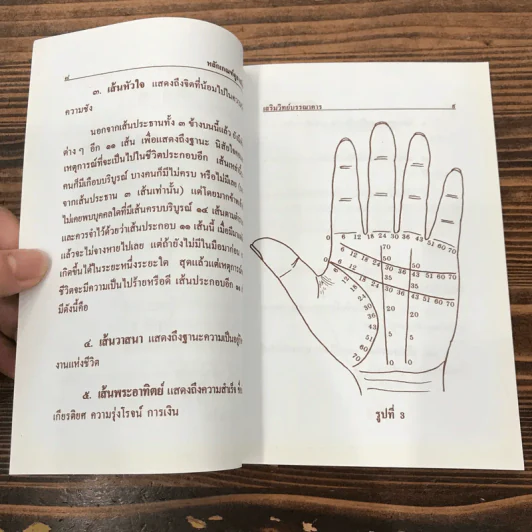 ๔
หลักเกณฑ์
๓. เส้นหัวใจ แสดงถึงจิตที่น้อมไปใน
ความชัง
นอกจากเส้นประธานทั้ง ๓ ข้างบนนี้แล้ว
ต่าง ๆ อีก ๑๑ เส้น เพื่อแสดงถึงฐานะ นิสัย
เหตุการณ์ที่จะเป็นไปในชีวิตประกอบอีก
คนก็มีเกือบบริบูรณ์ บางคนก็มีไม่ครบ หรือไม่มีเลย
จากเส้นประธาน ๓ เส้นเท่านั้น) แต่โดยมาก
ไม่เคยพบบุคคลใดที่มีเส้นครบบริบูรณ์ ๑๔ เส้น
และควรจำไว้ด้วยว่าเส้นประกอบ ๑๑ เส้นนี้
แล้วจะไม่จางหายไปเลย แต่ถ้ายังไม่มีในมือมาก่อน
เกิดขึ้นได้ในระยะหนึ่งระยะใด สุดแล้วแต่
ชีวิตจะมีความเป็นไปร้ายหรือดี เส้นประกอบอีก ๑๑
มีดังนี้คือ
๔. เส้นวาสนา แสดงถึงฐานะความเป็นอยู่
งานแห่งชีวิต
๕. เส้นพระอาทิตย์ แสดงถึงความสำเร็จ
เกียรติยศ ความรุ่งโรจน์ การเงิน
เสริมวิทย์บรรณาคาร
๕
0 6 12 18 24 30 36 43 51 60 70
70
50
0 6 12 18 24 30 36 43 51 60 70
35 35
0 6 12 18 24 30 36 43 51 60 70
20 20
5 5
6 12 18 24 30 36 43 51 60 70
รูปที่ 3